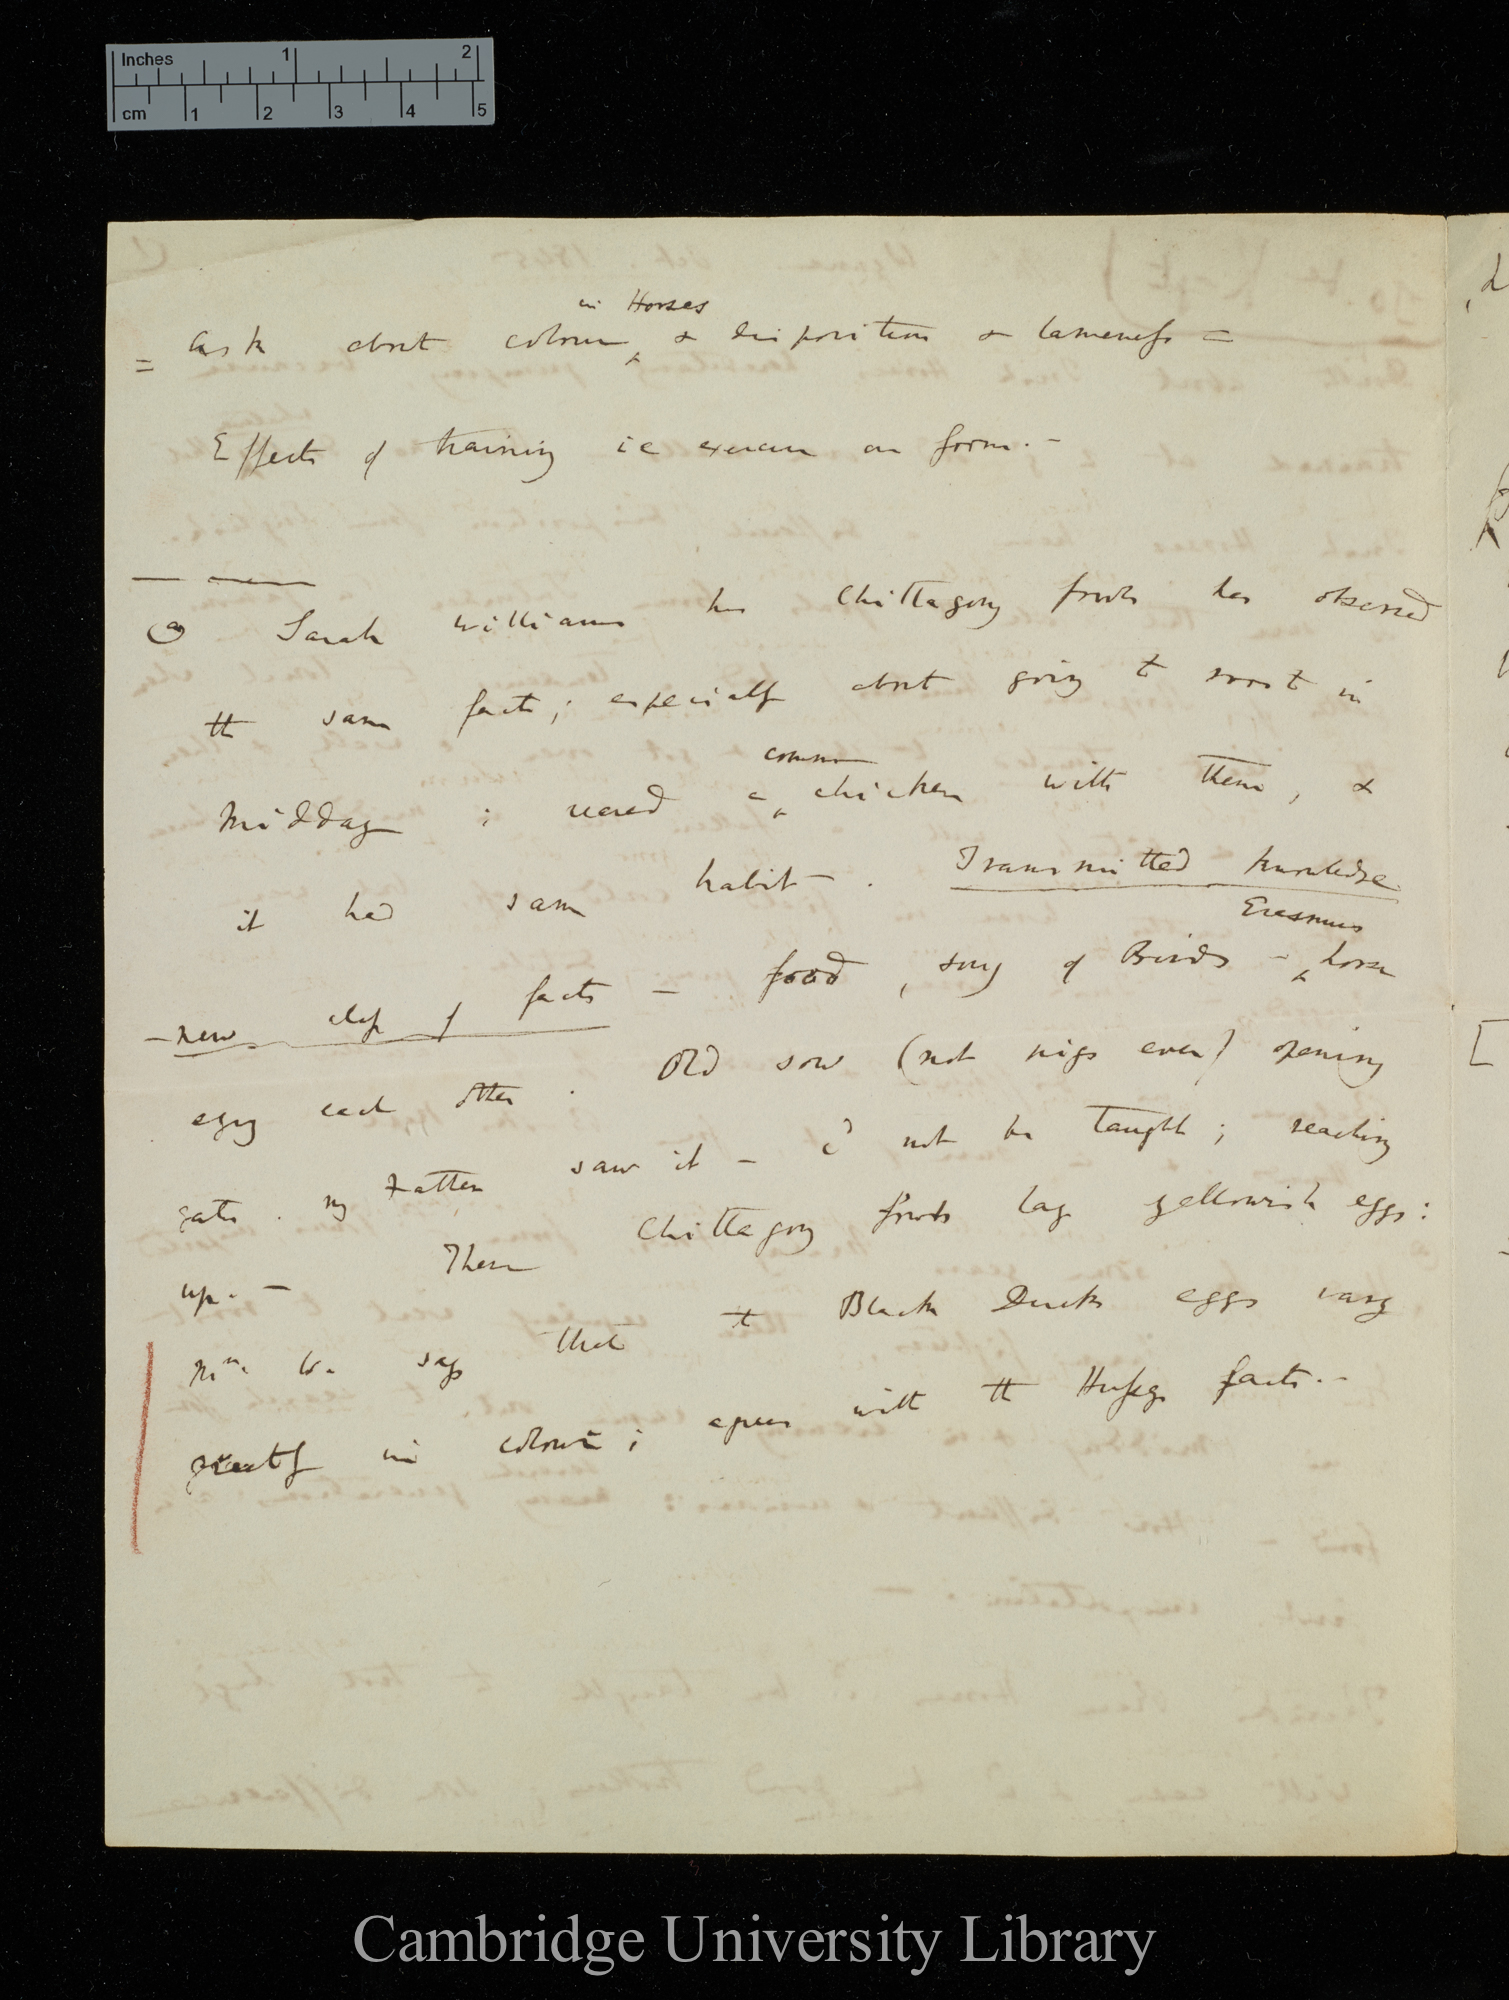 Inches 1 2
cm 1 2 3 4 5
in Horses
= Ask about colour ‸ & disposition & lameness =
Effects of training ie exercise on form. —
(a) Sarah Williams has Chittagong fowls has observed
the same facts; especially about going to roost in
common
Midday; reared a ‸ chicken with them, &
it had same habit —. Transmitted knowledge
Erasmus
— new class of facts — food, song of Birds — ‸ horse
egging each other. Old sow (not nigs even) opening
gate. my Father saw it — cd not be taught; reaching
up. — These Chittagong fowls lay yellowish eggs:
Mrs. W. says that the Black Ducks eggs vary
greatly in colour; agrees with the Hussey facts. —
Cambridge University Library